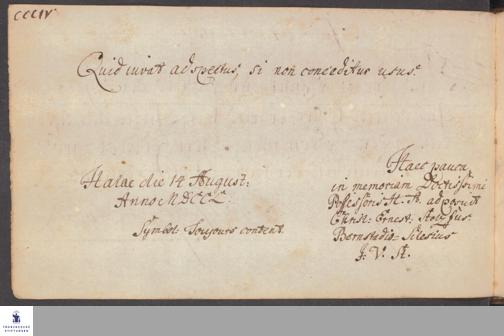 CCCIV.
Quid iuvat adspectus, si non conceditur usus.
Halae die 14 August:
Anno MDCCL.
Symbol: Toujours content
Haec pauca
in memoriam Doctissimi
Possessoris St. Th. adposuit
Christ: Ernest:
Bernstadia-Silesius
J. V. St.
FRANCKESCHE
STIFTUNGEN